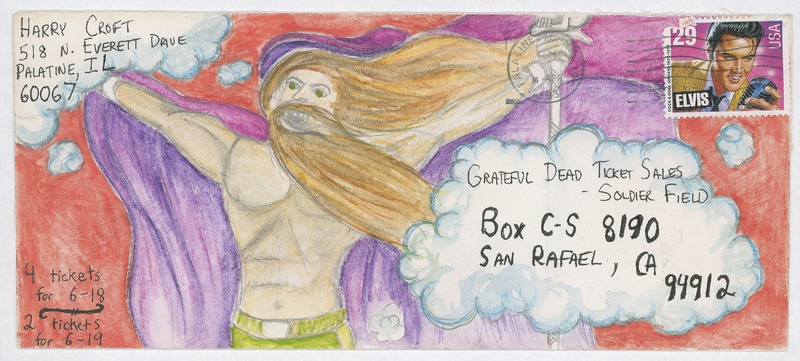 HARRY CROFT
518 N. EVERETT DRIVE
PALATINE, IL
60067
PALATINE
16 APR
29
USA
ELVIS
GRATEFUL DEAD TICKET SALES
- SOLDIER FIELD
BOX C-S 8190
SAN RAFAEL, CA
94912
4 tickets
for 6-18
2 tickets
for 6-19